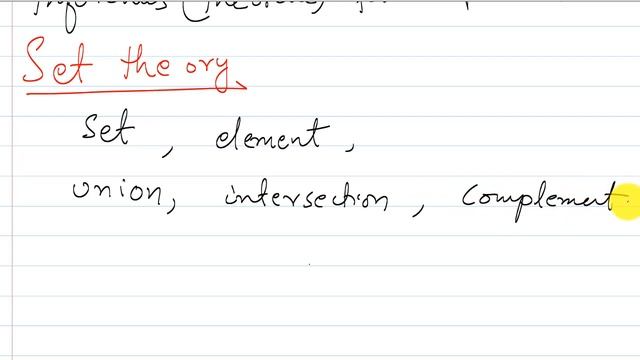 Set theory
set, element,
union, intersection, complement